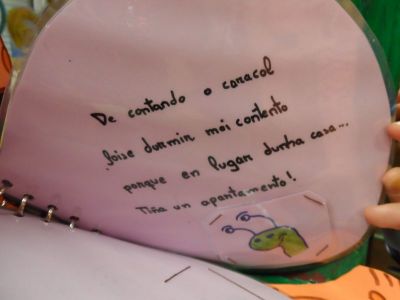 De contando o caracol
foise dormir moi contento
porque en lugar dunha casa...
Tiña un apartamento!